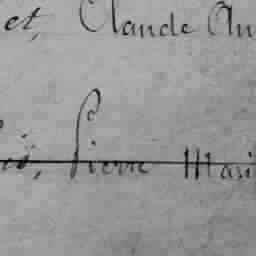 et, Claude An
Pierre Mari